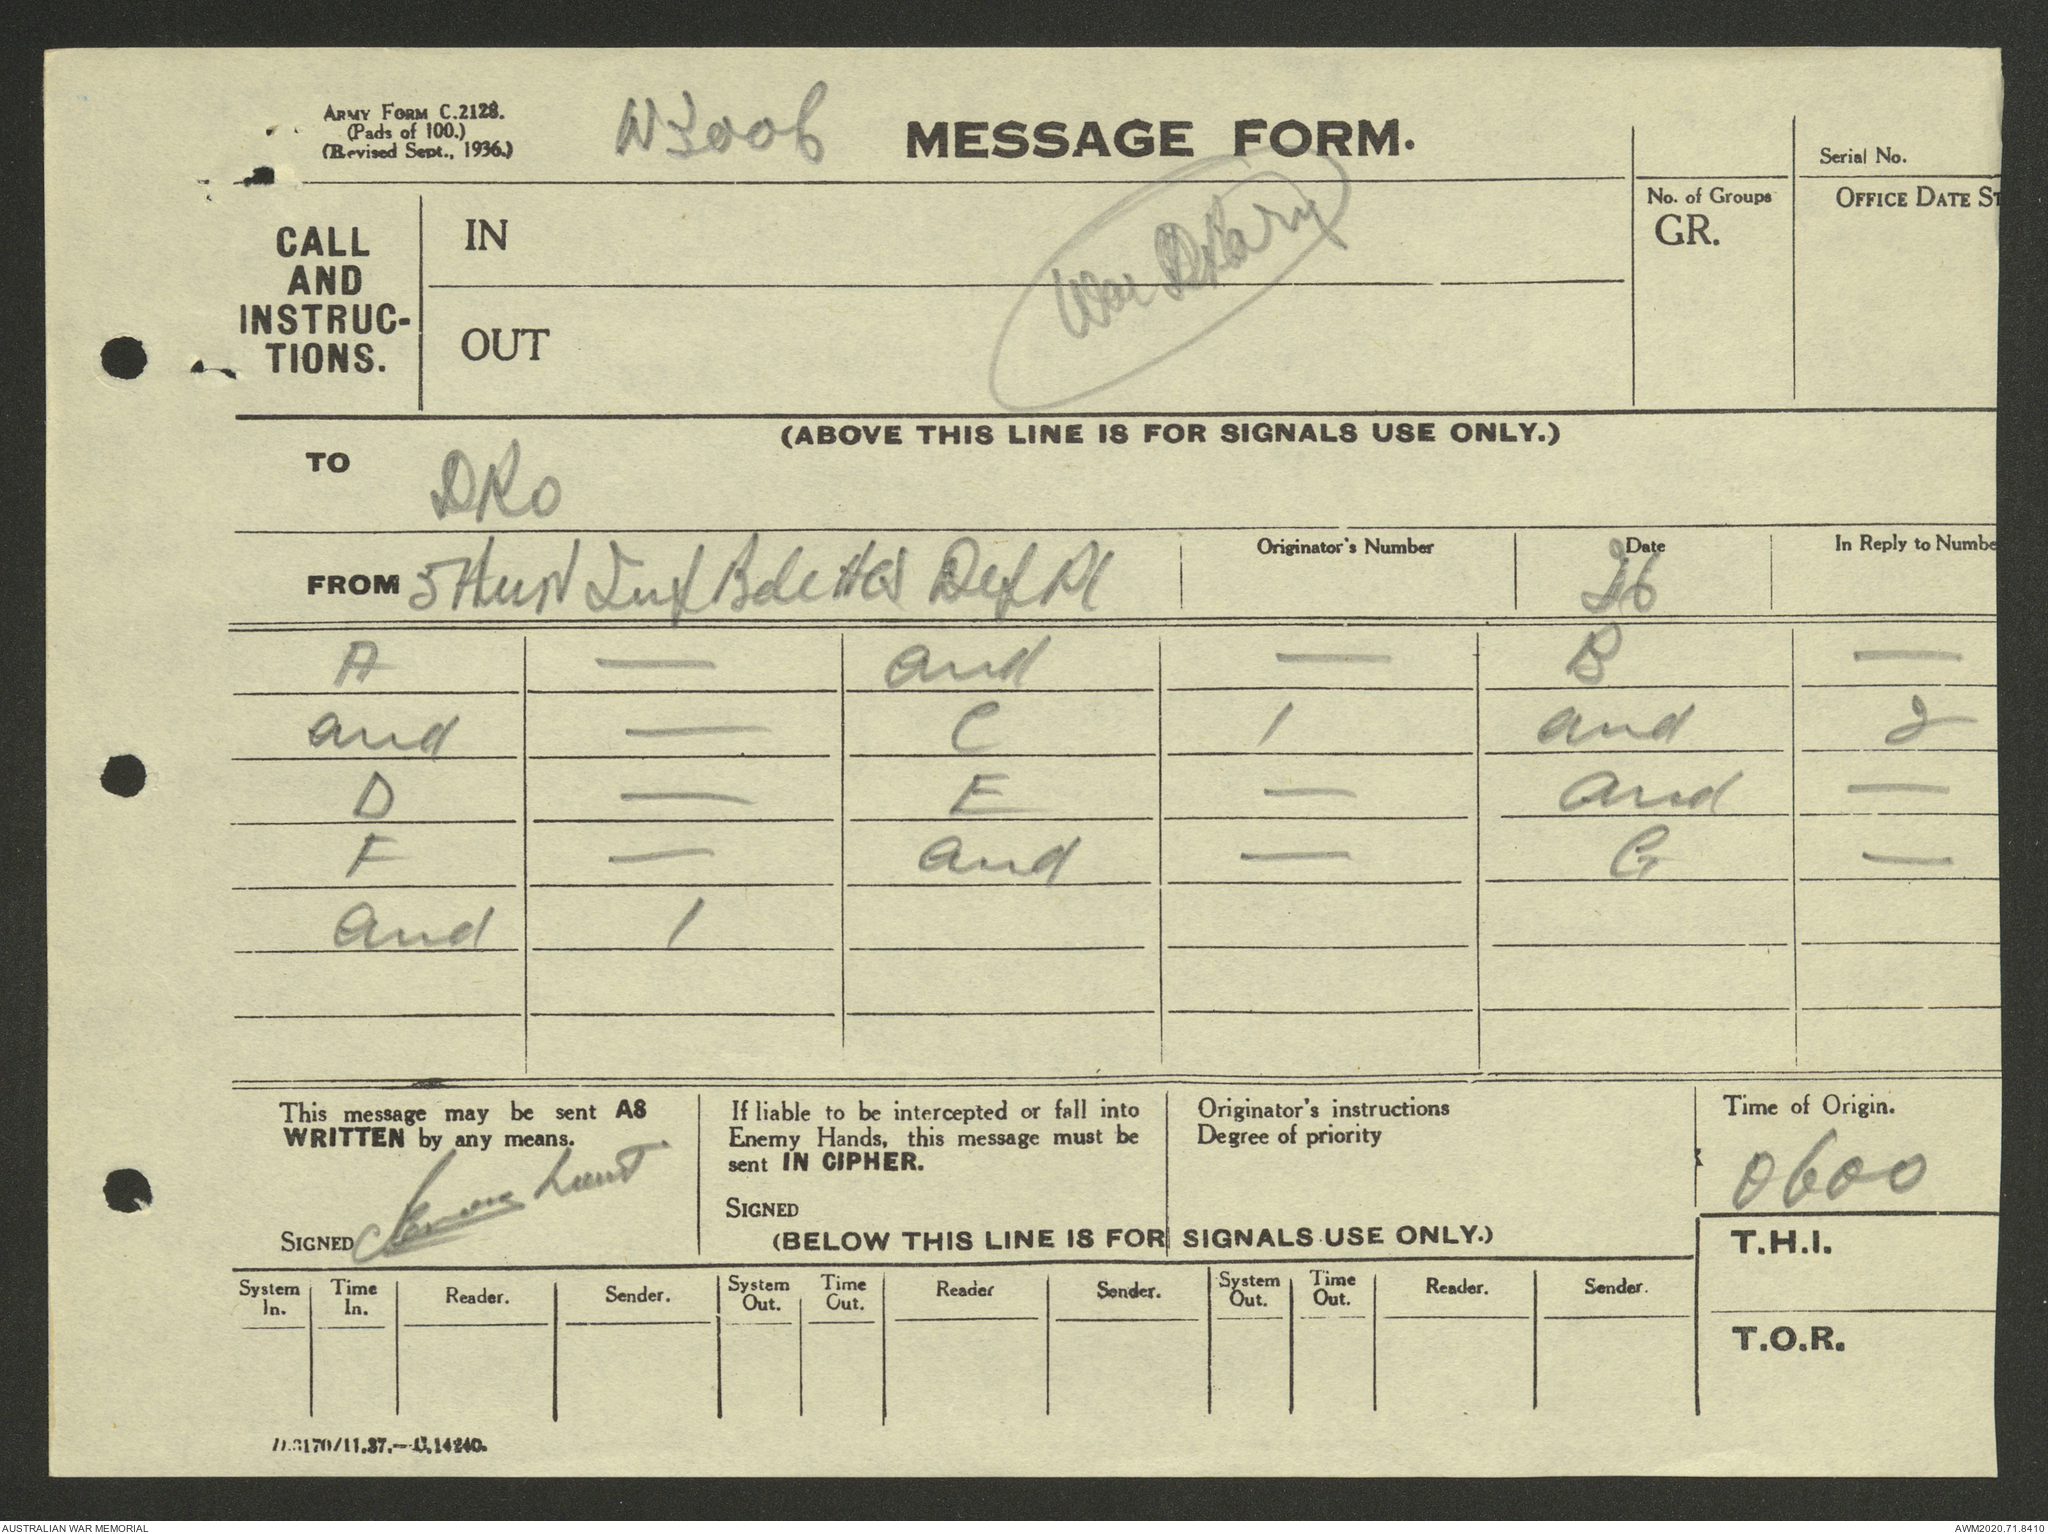 ARMY FORM C.2128.
(Pads of 100.)
(Revised Sept., 1936.)
MESSAGE FORM.
Serial No.
CALL AND INSTRUC-TIONS.
IN
OUT
War Diary
No. of Groups
GR.
OFFICE DATE ST
(ABOVE THIS LINE IS FOR SIGNALS USE ONLY.)
TO DRO
FROM 5 Aust Inf Bde HQ Def Pl
Originator's Number
Date 26
In Reply to Numbe
A — and — B —
and — C 1 and 2
D — E — and —
F — and — G —
and 1
This message may be sent AS
WRITTEN by any means.
SIGNED
If liable to be intercepted or fall into
Enemy Hands, this message must be
sent IN CIPHER.
SIGNED
Originator's instructions
Degree of priority
Time of Origin.
0600
(BELOW THIS LINE IS FOR SIGNALS USE ONLY.)
T.H.I.
System In. Time In. Reader. Sender. System Out. Time Out. Reader Sender. System Out. Time Out. Reader. Sender.
T.O.R.
AUSTRALIAN WAR MEMORIAL
AWM2020.71.8410